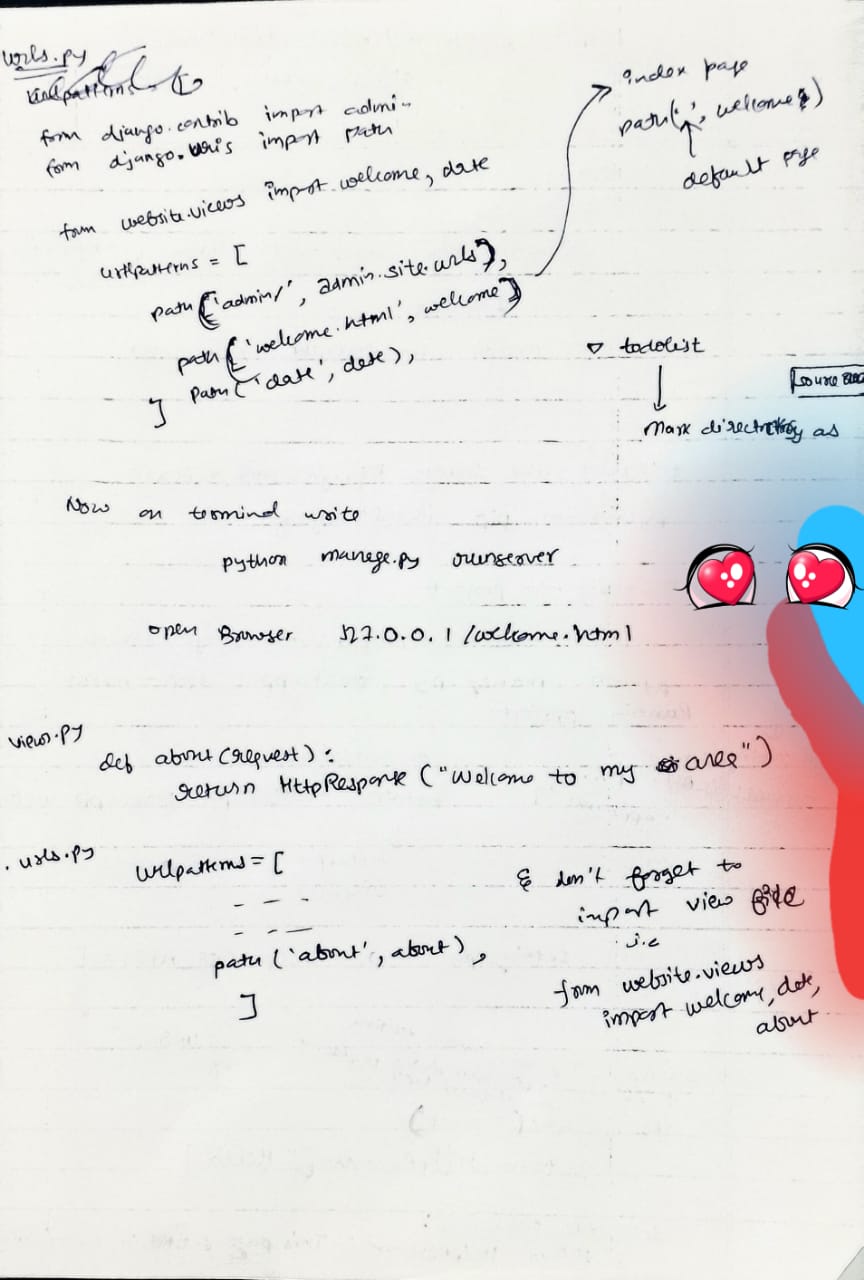 urls.py
form django.contrib import admin
form django.urls import path
form website.views import welcome, date
urlpatterns = [
path('admin/', admin.site.urls),
path('welcome.html', welcome)
path('date', date),
]
index page
path('', welcome)
default page
▽ todolist
Mark directory as
Now on terminal write
python manage.py runserver
open Browser 127.0.0.1/welcome.html
views.py
def about(request):
return HttpResponse("Welcome to my area")
. urls.py
urlpatterns = [
- - -
- - -
path('about', about),
]
& don't forget to
import view file
i.e
form website.views
import welcome, date,
about